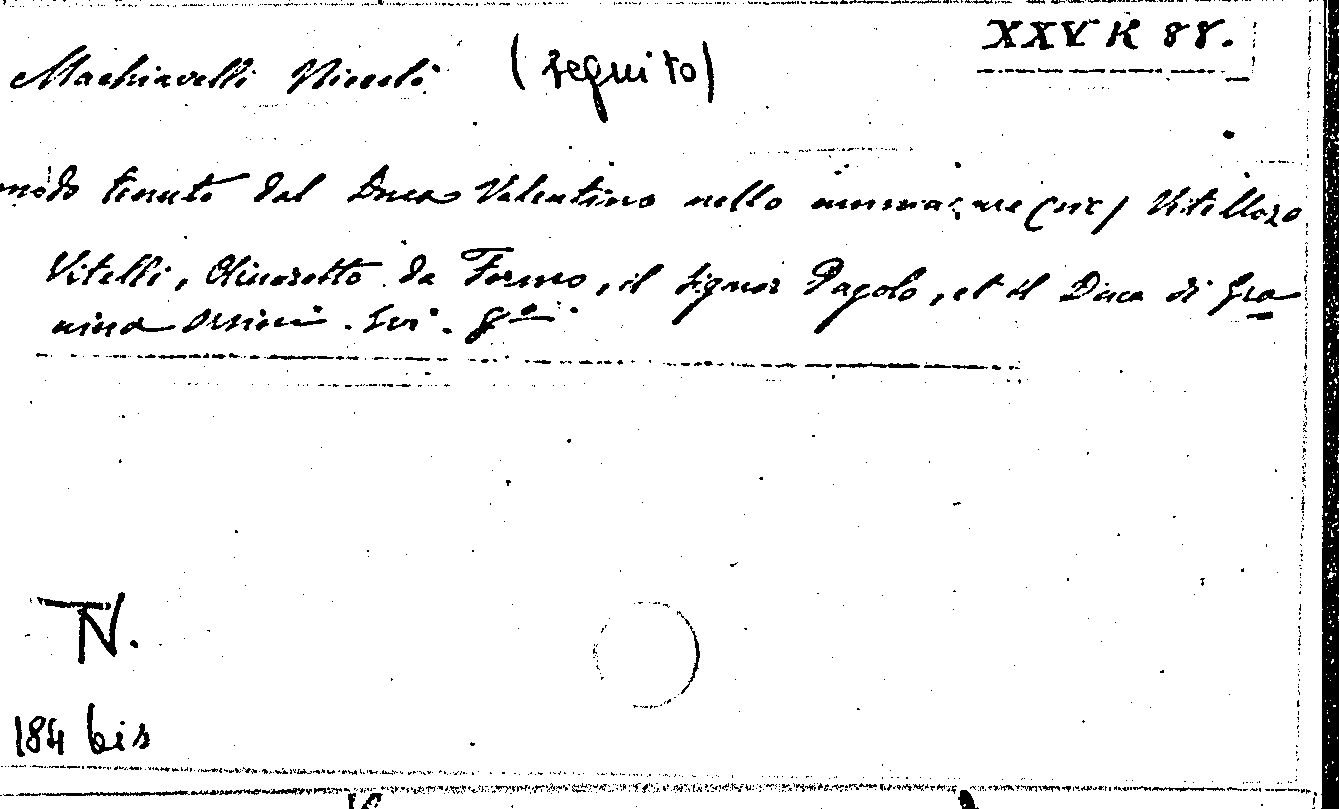 XXV K 88.
Machiavelli Niccolò (seguito)
modo tenuto dal Duca Valentino nello ammazzare (sic) Vitellozo
Vitelli, Oliverotto da Fermo, il Signor Pagolo, et il Duca di Gra
vina Orsini. Ivi.
N.
184 bis